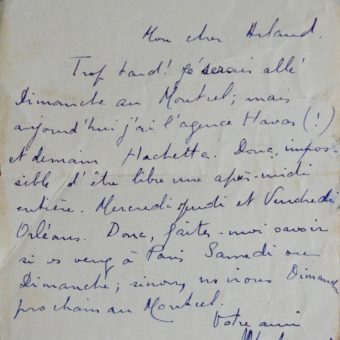 Mon cher Arland.
Trop tard! Je serais allé
Dimanche au Montcel; mais
aujourd'hui j'ai l'agence Havas (!)
et demain Hachette. Donc, impos-
sible d'être libre une après-midi
entière. Mercredi Jeudi et Vendredi
Orléans. Donc, faites-moi savoir
si vs venez à Paris Samedi ou
Dimanche; sinon, ns irons Dimanche
prochain au Montcel.
Votre ami